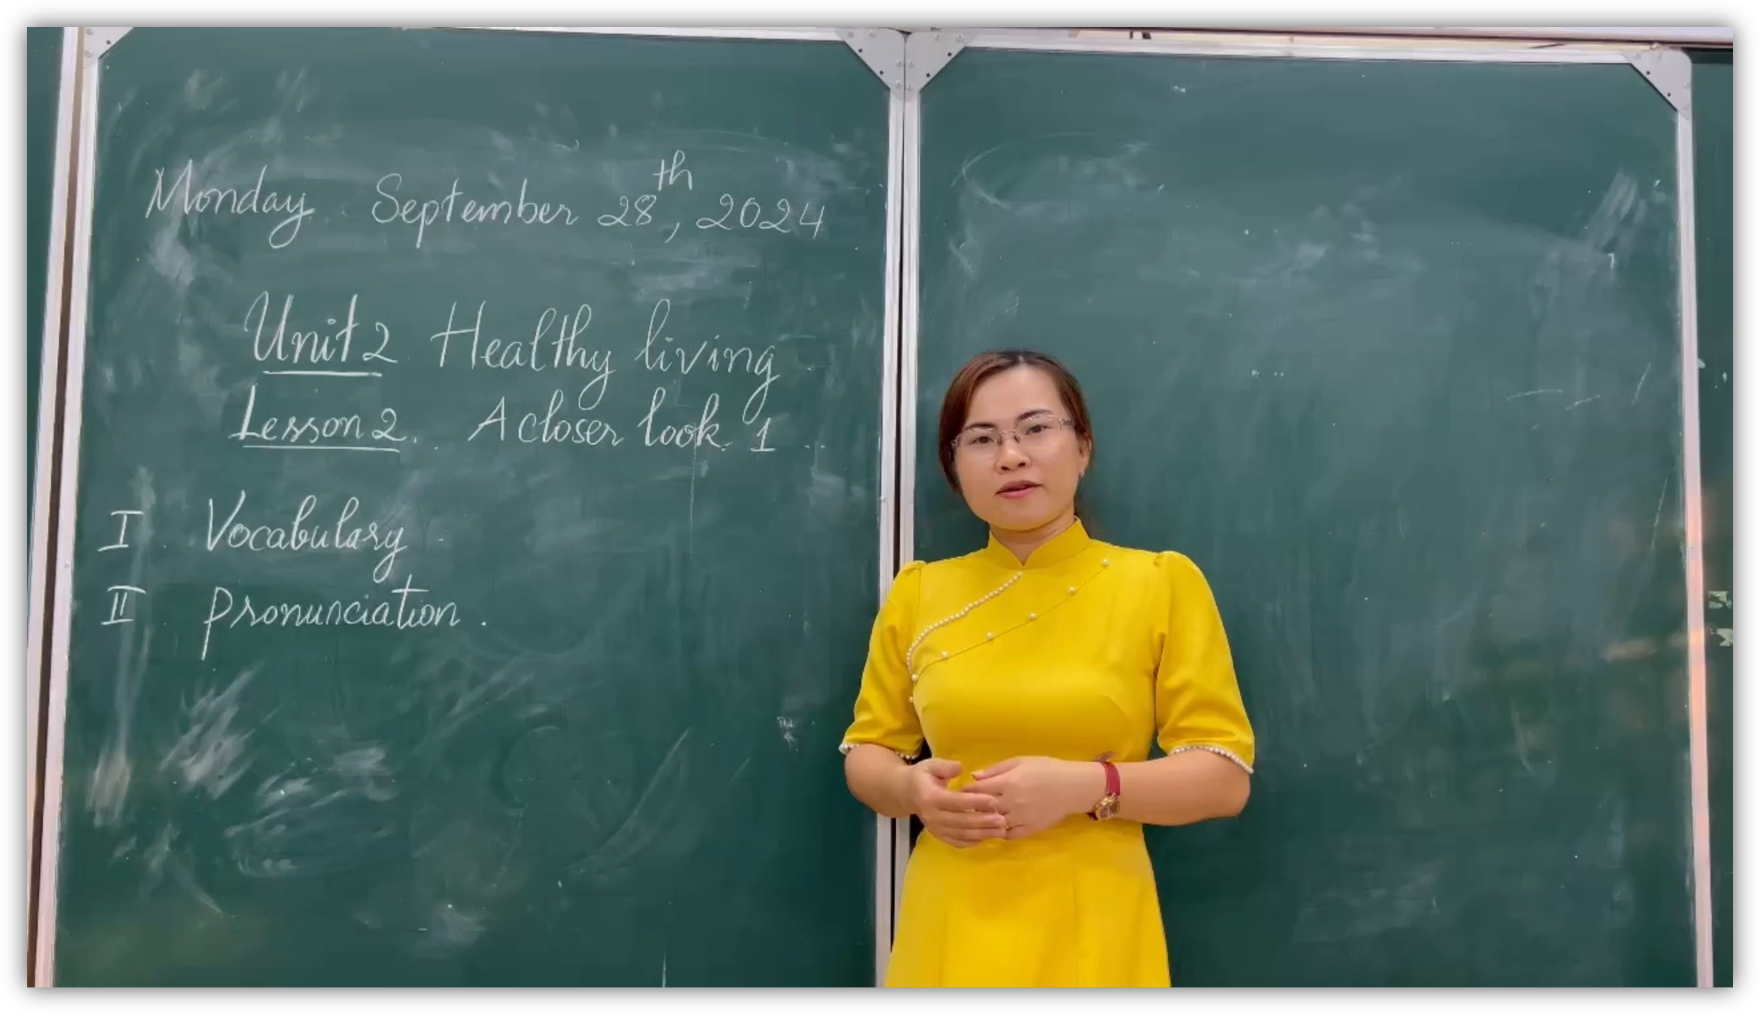 Monday September 28th, 2024
Unit 2 Healthy living
Lesson 2. A closer look 1
I Vocabulary
II Pronunciation.